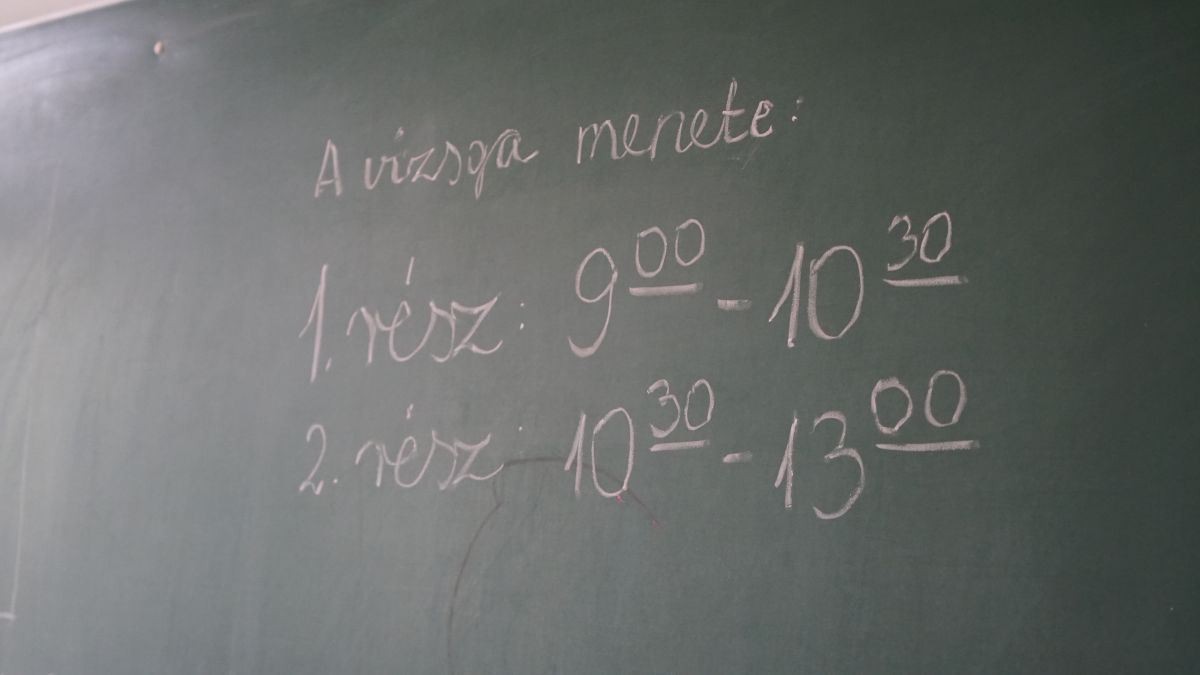 A vizsga menete:
1. rész: 9⁰⁰ - 10³⁰
2. rész: 10³⁰ - 13⁰⁰